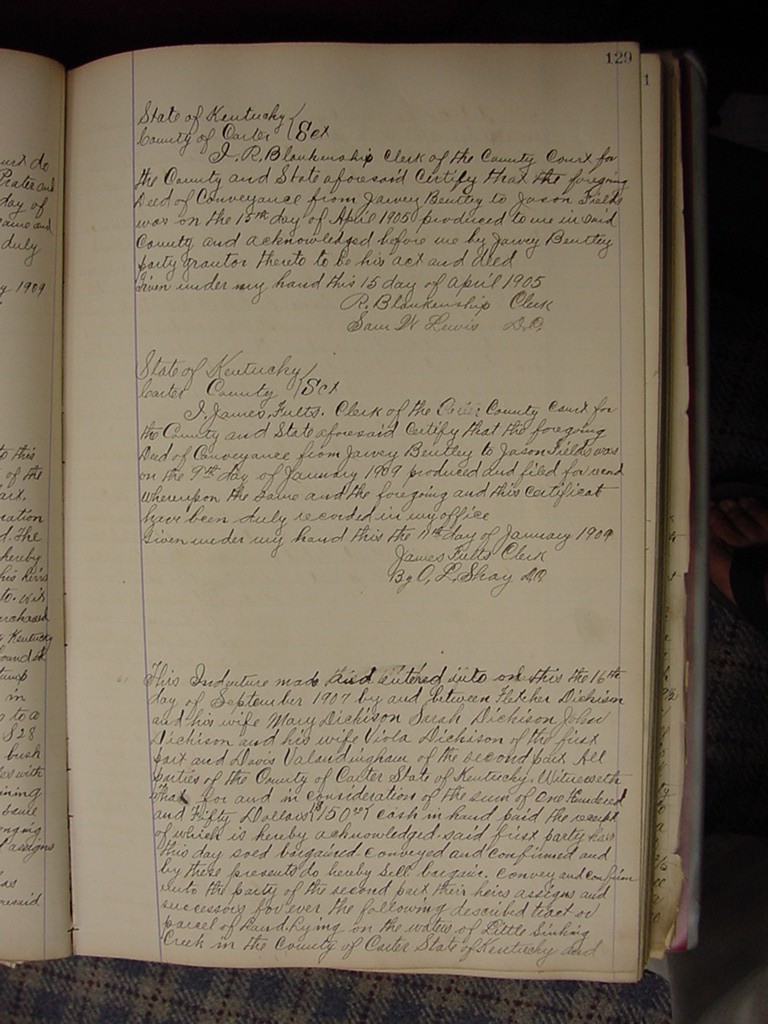 129
State of Kentucky
County of Carter Sct
I. R. Blankenship Clerk of the County Court for
the County and State aforesaid Certify that the foregoing
Deed of Conveyance from Jarvey Bentley to Jason Fields
was on the 15th day of April 1905 produced to me in said
County and acknowledged before me by Jarvey Bentley
party grantor thereto to be his act and deed
Given under my hand this 15 day of April 1905
R. Blankenship Clerk
Sam W Lewis D.C.
State of Kentucky
Carter County Sct
I. James, Fults. Clerk of the Carter County Court for
the County and State aforesaid Certify that the foregoing
Deed of Conveyance from Jarvey Bentley to Jason Fields was
on the 9th day of January 1909 produced and filed for record
Whereupon the same and the foregoing and this certificat
have been duly recorded in my office
Given under my hand this the 11th day of January 1909
James Fults Clerk
By O, L, Shay DC
This Indenture made and entered into on this the 16th
day of September 1907 by and between Fletcher Dickison
and his wife Mary Dickison Sarah Dickison John
Dickison and his wife Viola Dickison of the first
part and Davis Valandingham of the second part All
parties of the County of Carter State of Kentucky. Witnesseth
that for and in consideration of the sum of One Hundred
and Fifty Dollars $150 cash in hand paid the receipt
of which is hereby acknowledged said first party has
this day sold bargained conveyed and confirmed and
by these presents do hereby sell bargain. convey and confirm
unto the party of the second part their heirs assigns and
successors for ever the following described tract or
parcel of Land. Lying on the waters of Little Sinking
Creek in the County of Carter State of Kentucky and